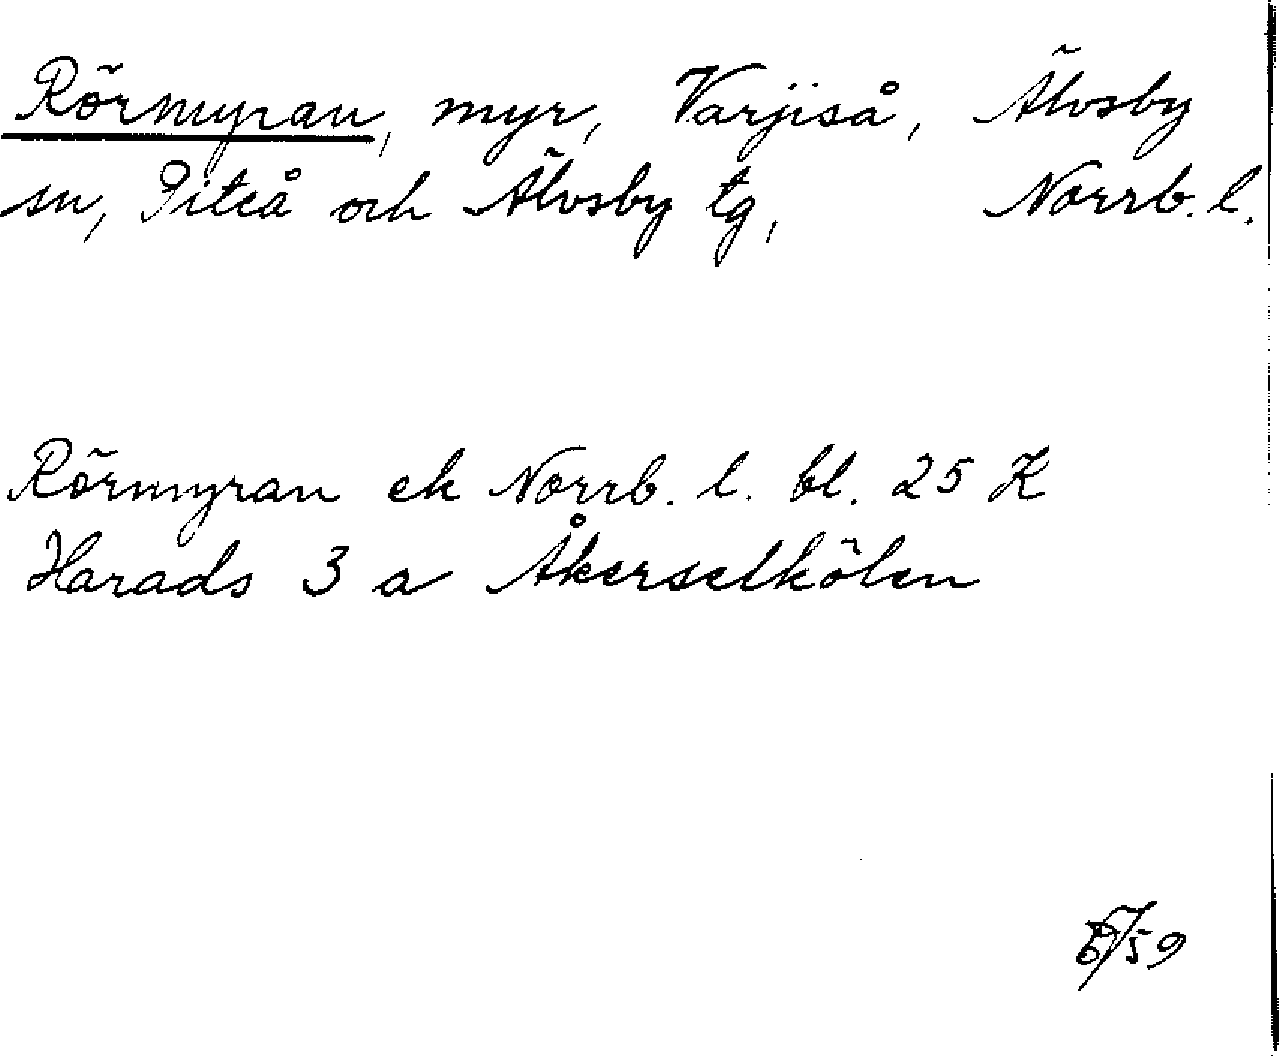 Rörmyran, myr, Varjiså, Älvsby
sn, Piteå och Älvsby tg, Norrb. l.
Rörmyran ek Norrb. l. bl. 25 K
Harads 3 a Åkerselkölen